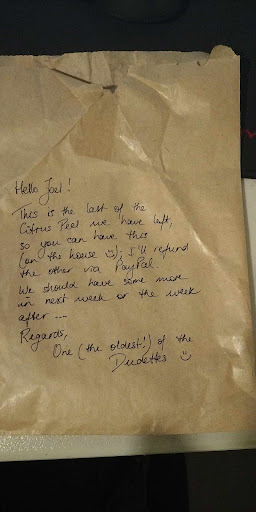 Hello Joel!
This is the last of the
Citrus Peel we have left,
so you can have this
(on the house ☺); I'll refund
the other via PayPal.
We should have some more
in next week or the week
after ....
Regards,
One (the oldest!) of the
Dudettes ☺